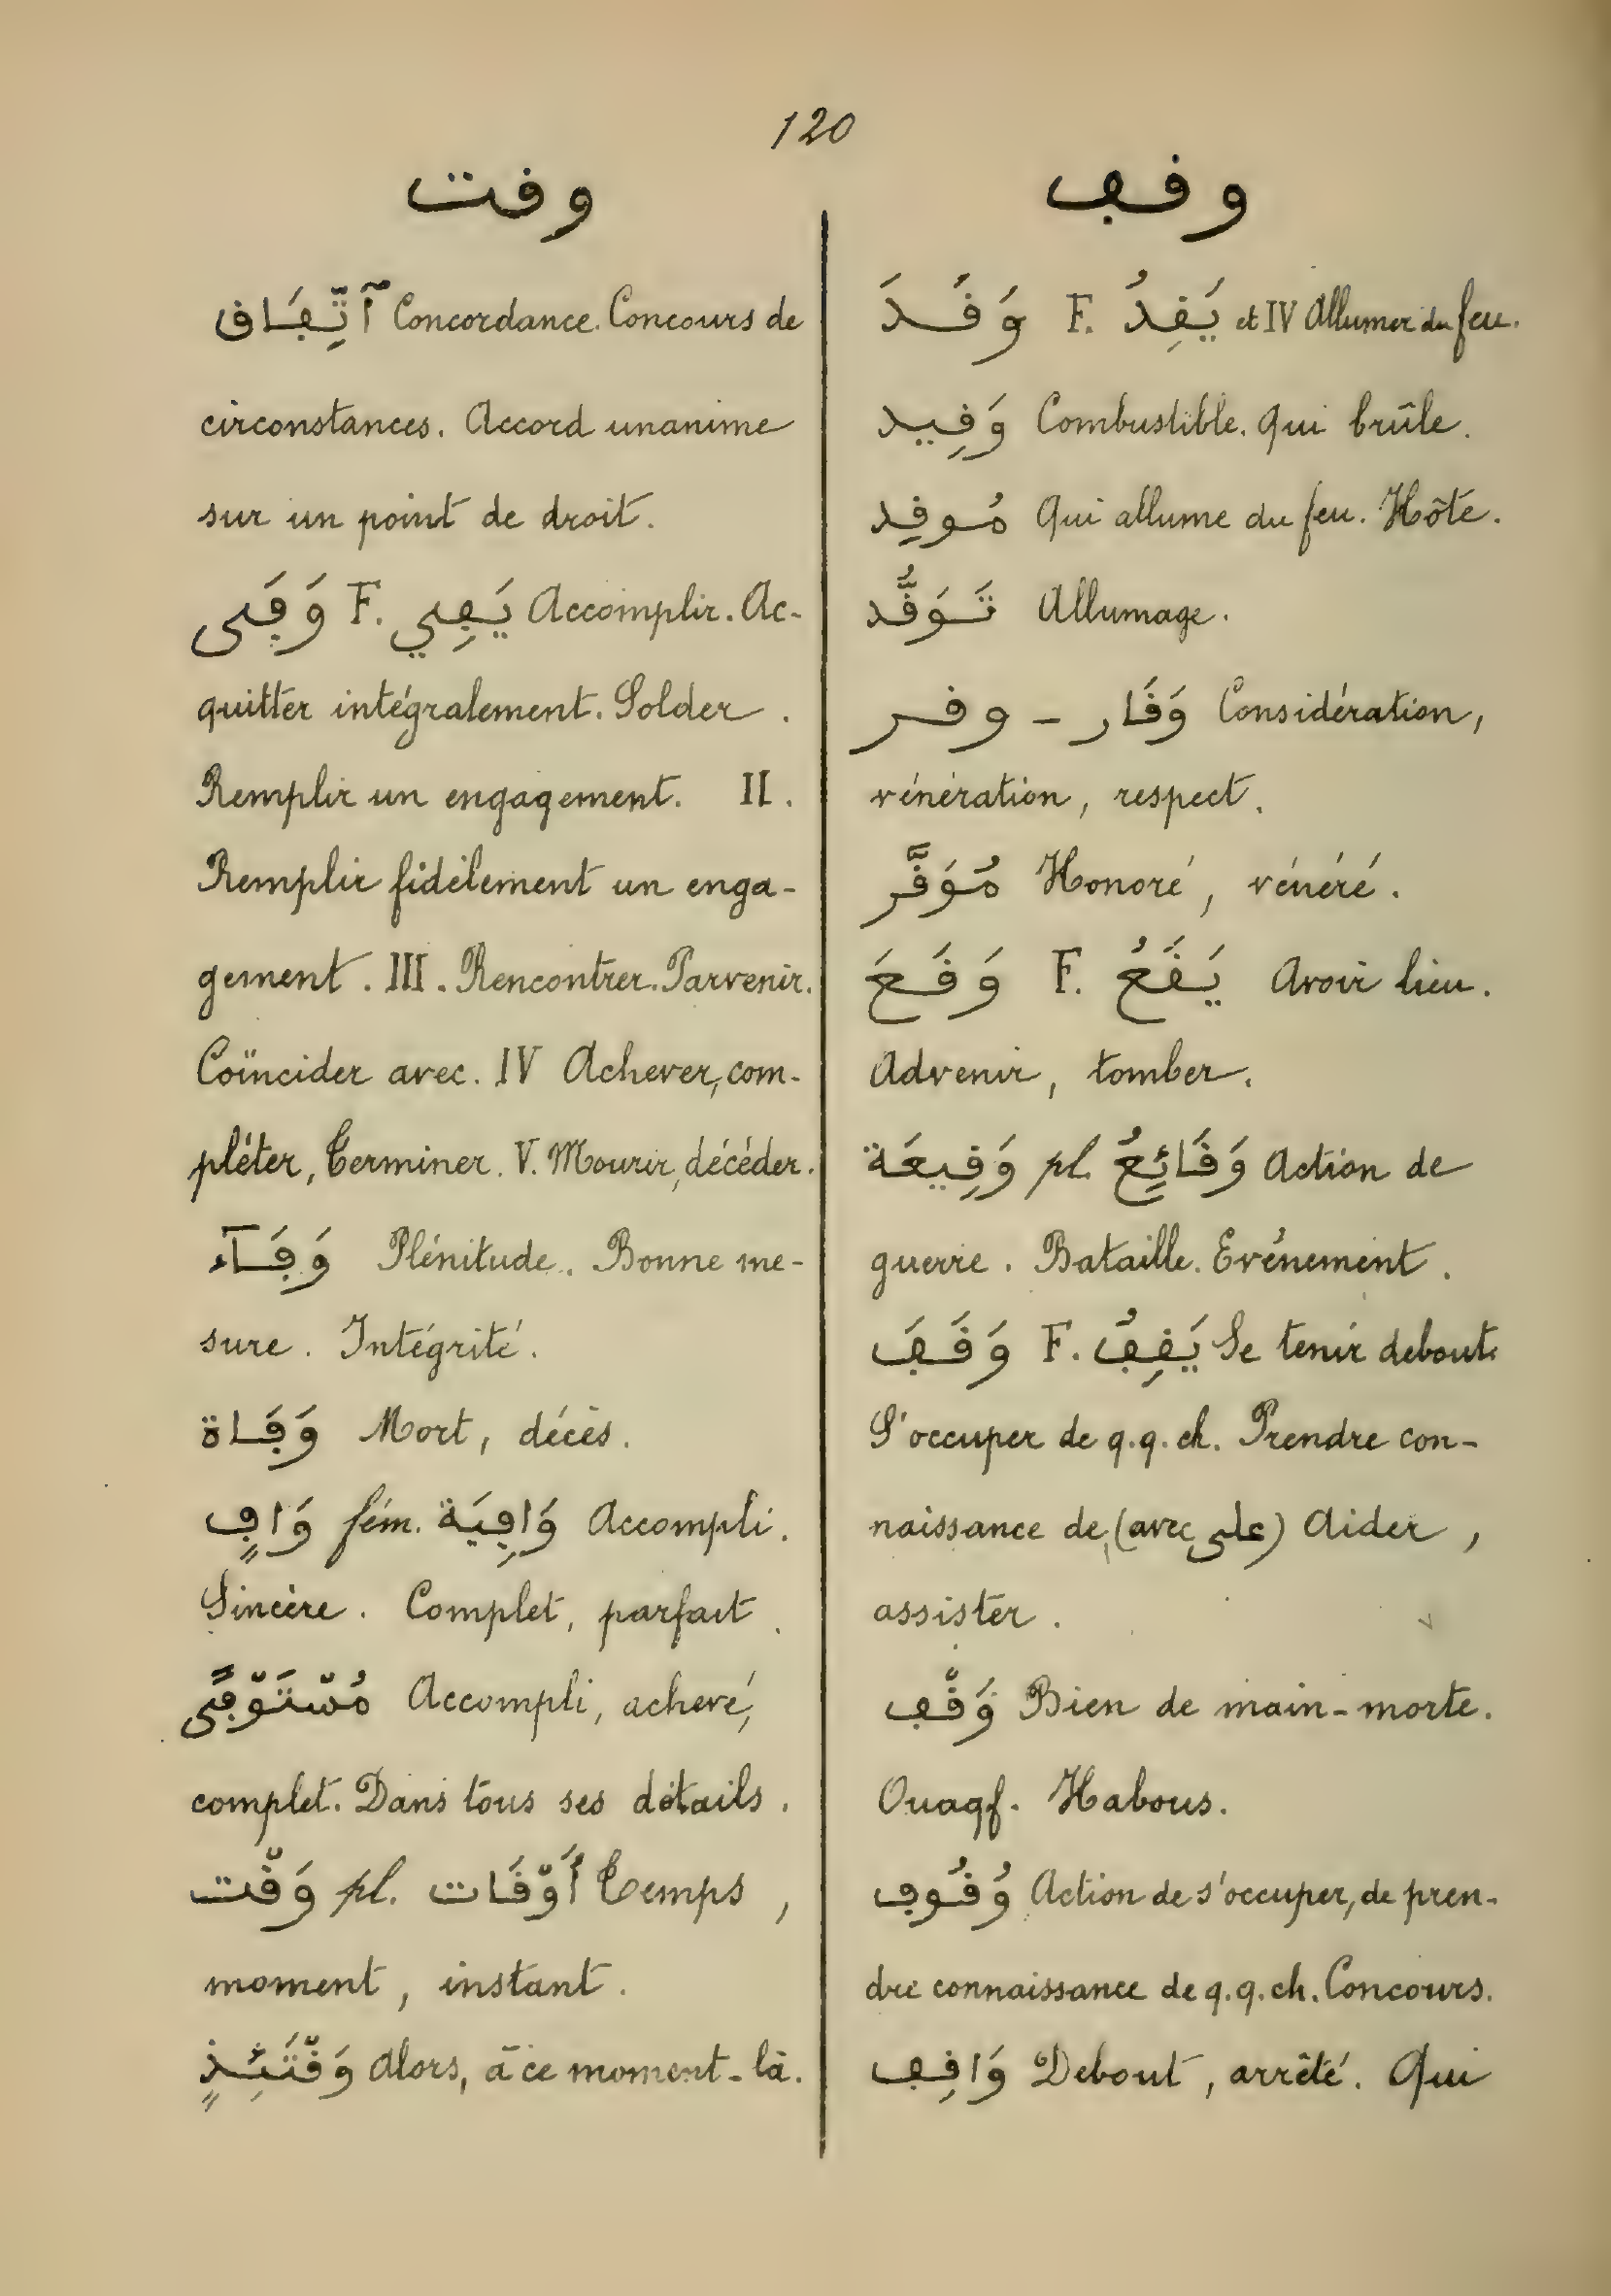 120
وقت
ٱتِّفَاق Concordance. Concours de
circonstances. Accord unanime
sur un point de droit.
وَفَى F. يَفِي Accomplir. Ac-
quitter intégralement. Solder.
Remplir un engagement. II.
Remplir fidèlement un enga-
gement. III. Rencontrer. Parvenir.
Coïncider avec. IV Achever, com-
pléter, Terminer. V. Mourir, décéder.
وَفَآء Plénitude. Bonne me-
sure. Intégrité.
وَفَاة Mort, décès.
وَافٍ fém. وَافِيَة Accompli.
Sincère. Complet, parfait.
مُسْتَوْفًى Accompli, achevé,
complet. Dans tous ses détails.
وَقْت pl. أَوْقَات Temps,
moment, instant.
وَقْتَئِذٍ Alors, à ce moment-là.
وقف
وَقَدَ F. يَقِدُ et IV Allumer du feu.
وَقِيد Combustible. Qui brûle.
مُوقِد Qui allume du feu. Hôte.
تَوَقُّد Allumage.
وقر - وَقَار Considération,
vénération, respect.
مُوَقَّر Honoré, vénéré.
وَقَعَ F. يَقَعُ Avoir lieu.
Advenir, tomber.
وَقِيعَة pl. وَقَائِعُ Action de
guerre. Bataille. Evénement.
وَقَفَ F. يَقِفُ Se tenir debout.
S'occuper de q.q. ch. Prendre con-
naissance de (avec على) Aider,
assister.
وَقْف Bien de main-morte.
Ouaqf. Habous.
وُقُوف Action de s'occuper, de pren-
dre connaissance de q.q. ch. Concours.
وَاقِف Debout, arrêté. Qui